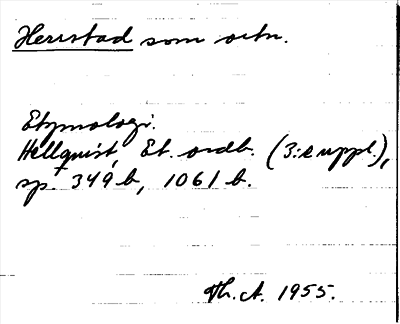 Herrstad som ortn.
Etymologi.
Hellquist, Et. ordb. (3:e uppl.),
sp. 349 b, 1061 b.
Th. A. 1955.